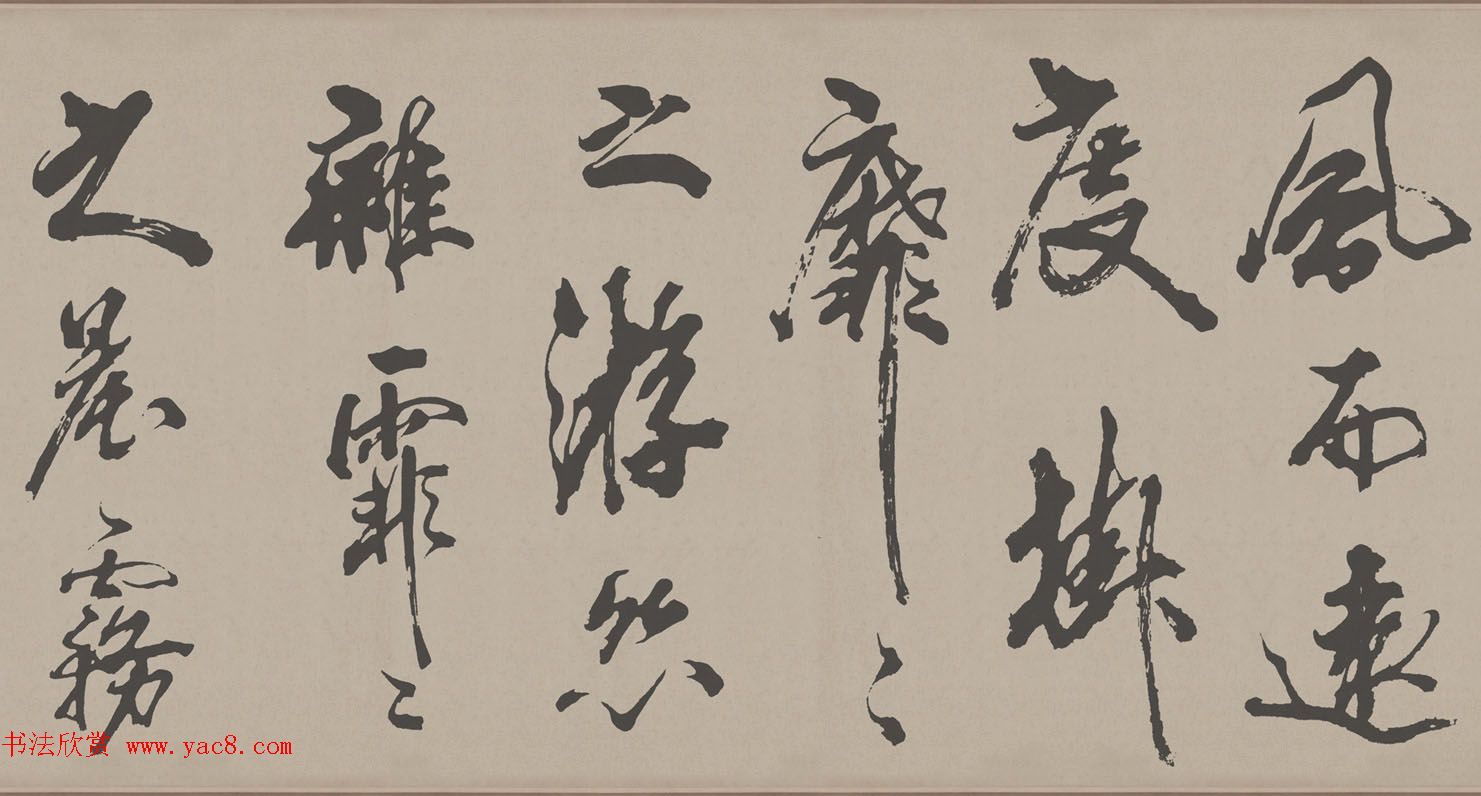 風而遠
度掛
靡々
之游絲
雜霏々
之晨霧
书法欣赏 www.yac8.com